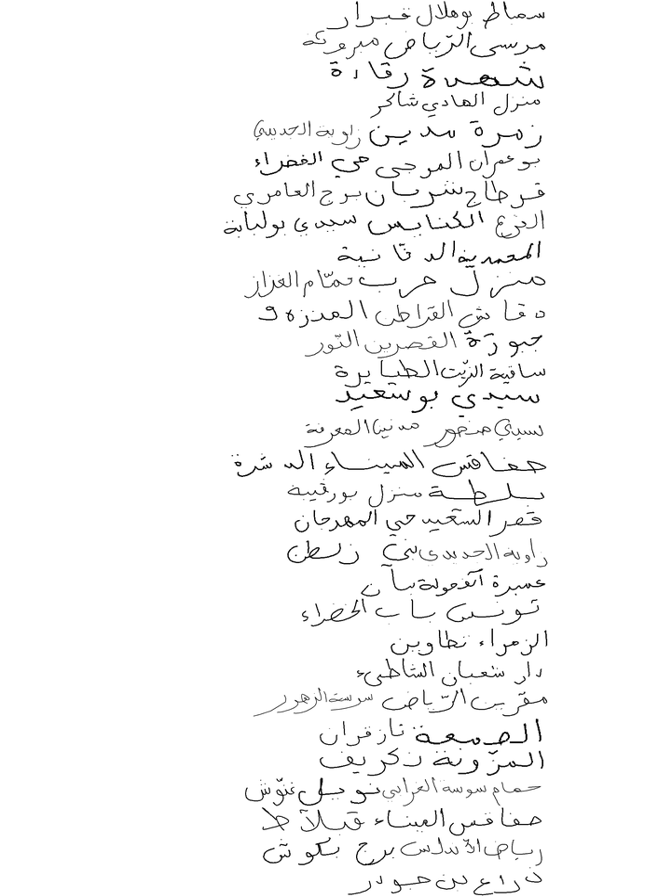 سماط بوهلال قبرار
مرسى الرّياض مبروكة
شهدة رقادة
منزل الهادي شاكر
زمرة مدين زاوية الجديدي
بوعمران المرجى حي الخضراء
قرطاج شربان برج العامري
الفرع الكنايس سيدي بولبابة
المحمدية الدقانية
منزل حرب حمّام الغزاز
دقاش القراطن المنزه 9
جبوزة القصرين النّور
ساقية الزّيت الطبايرة
سيدي بوسعيد
سيدي منصور مدنين المعرفة
صفاقس الميناء الدشرة
سلطة منزل بورقيبة
قصر السّعيد حي المهرجان
زاوية الجديدي بني زلطن
عميرة الفحولة سيآن
تونس باب الخضراء
الزهراء تطاوين
دار شعبان الشاطىء
مقرين الرّياض سوسة الزهور
الصمعة تازقران
المزّونة زكريف
حمام سوسة الغرابي نويل غنّوش
صفاقس الميناء قبلاط
رياض الأندلس برج بكوش
ذراع بن جودر